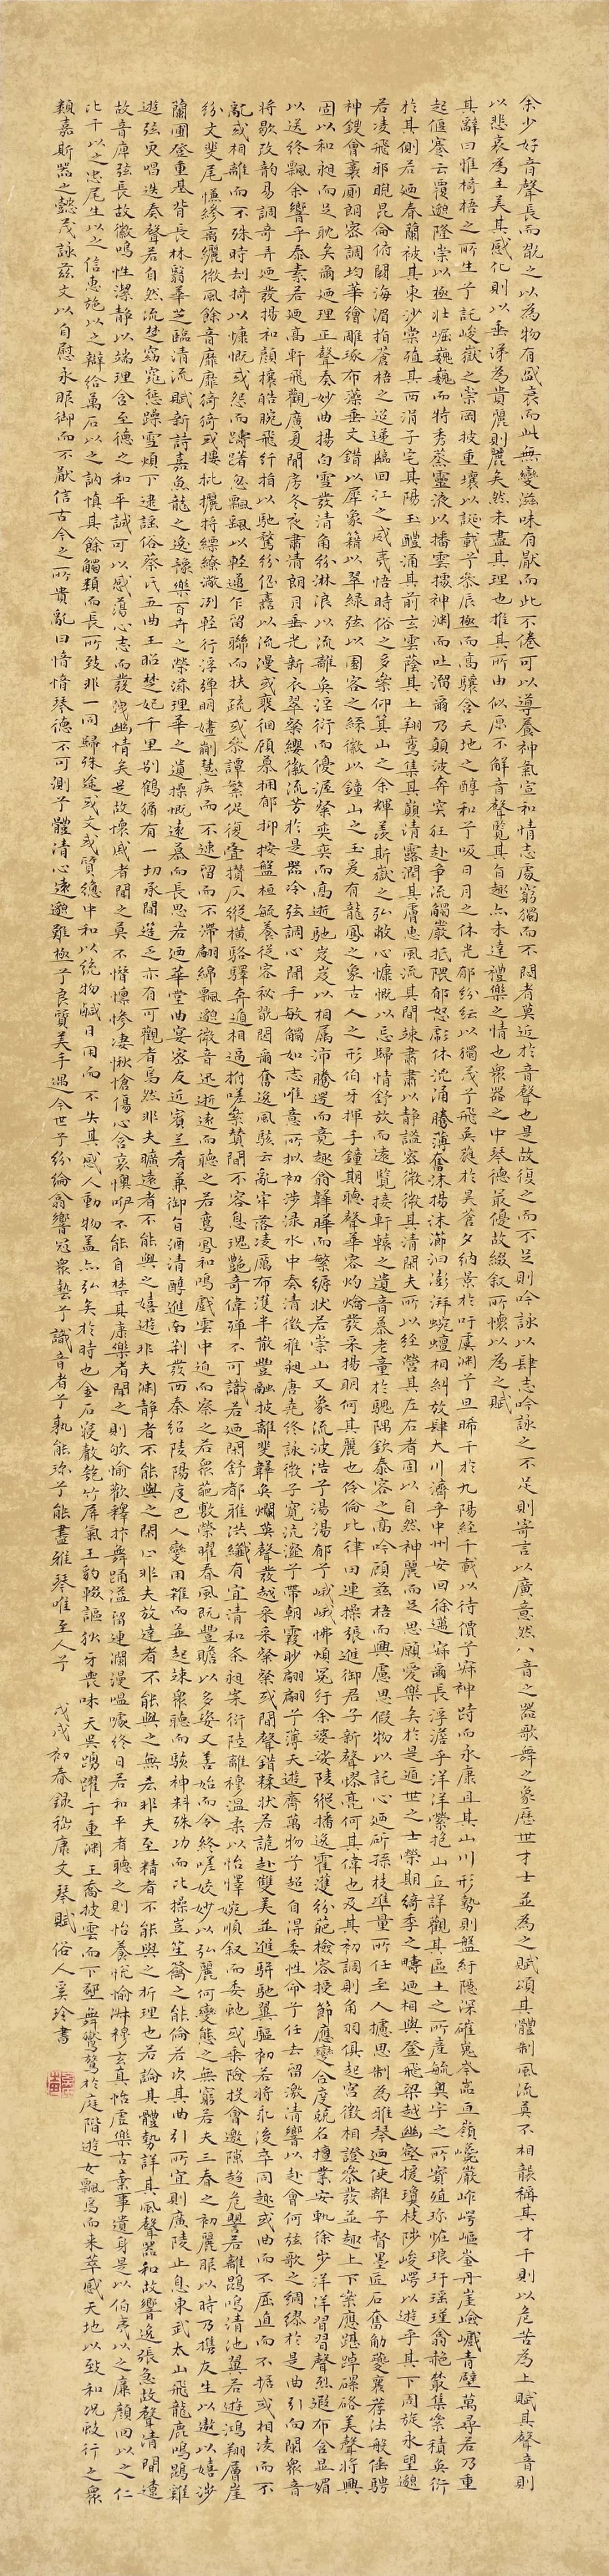 余少好音聲長而翫之以為物有盛衰而此無變滋味有猒而此不倦可以導養神氣宣和情志處窮獨而不悶者莫近於音聲也是故復之而不足則吟詠以肆志吟詠之不足則寄言以廣意然八音之器歌舞之象歷世才士並為之賦頌其體制風流莫不相襲稱其才干則以危苦為上賦其聲音則
以悲哀為主美其感化則以垂涕為貴麗則麗矣然未盡其理也推其所由似原不解音聲覽其旨趣亦未達禮樂之情也衆器之中琴德最優故綴叙所懷以為之賦
其辭曰惟椅梧之所生兮託峻嶽之崇岡披重壤以誕載兮參辰極而高驤含天地之醇和兮吸日月之休光郁紛紜以獨茂兮飛英蕤於昊蒼夕納景於吁虞淵兮旦晞干於九陽經千載以待價兮寂神跱而永康且其山川形勢則盤紆隱深確嵬岑嵓亘嶺巉巖岞崿嶇崟丹崖嶮巇青壁萬尋若乃重
起偃蹇云覆邈隆崇以極壯崛巍巍而特秀蒸靈液以播雲據神淵而吐溜爾乃顛波奔突狂赴爭流觸巖抵隈郁怒彪休洶涌騰薄奮沫揚沫瀄汩澎湃蜿蟺相糾放肆大川濟乎中州安回徐邁寂爾長浮澹乎洋洋縈抱山丘詳觀其區土之所產毓奧宇之所寶殖珍怪琅玕瑤瑾翕赩叢集累積奐衍
於其側若迺春蘭被其東沙棠殖其西涓子宅其陽玉醴涌其前玄雲蔭其上翔鸞集其巔清露潤其膚惠風流其間竦肅肅以靜謐密微微其清閑夫所以經營其左右者固以自然神麗而足思願愛樂矣於是遁世之士榮期綺季之疇迺相與登飛梁越幽壑援瓊枝陟峻崿以遊乎其下周旋永望邈
若凌飛邪睨昆侖俯闞海湄指蒼梧之迢遞臨回江之威夷悟時俗之多累仰箕山之余輝羨斯嶽之弘敞心慷慨以忘歸情舒放而遠覽接軒轅之遺音慕老童於騩隅欽泰容之高吟顧茲梧而興慮思假物以託心迺斫孫枝準量所任至人攄思制為雅琴迺使離子督墨匠石奮斤夔襄荐法般倕騁
神鎪會裛廁朗密調均華繪雕琢布藻垂文錯以犀象籍以翠綠弦以園客之絲徽以鐘山之玉爰有龍鳳之象古人之形伯牙揮手鐘期聽聲華容灼爚發采揚明何其麗也伶倫比律田連操張進御君子新聲憀亮何其偉也及其初調則角羽俱起宮徵相證參發並趣上下累應踸踔磥硌美聲將興
固以和昶而足耽矣爾迺理正聲奏妙曲揚白雪發清角紛淋浪以流離奐淫衍而優渥粲奕奕而高逝馳岌岌以相屬沛騰遌而競趣翕韡曄而繁縟狀若崇山又象流波浩兮湯湯郁兮峨峨怫煩冤紆余婆娑陵縱播逸霍濩紛葩檢容授節應變合度兢名擅業安軌徐步洋洋習習聲烈遐布含显媚
以送終飄余響乎泰素若迺高軒飛觀廣夏閑房冬夜肅清朗月垂光新衣翠粲纓徽流芳於是器冷弦調心閑手敏觸如志唯意所擬初涉淥水中奏清徵雅昶唐堯終詠微子寬流溢兮帶朝霞眇翩翩兮薄天遊齊萬物兮超自得委性命兮任去留激清響以赴會何弦歌之綢繆於是曲引向闌衆音
將歇改韵易調奇弄迺發揚和顏攘皓腕飛纤指以馳騖紛以流漫或裵徊顧慕擁郁抑按盤桓毓養從容秘翫闥爾奮逸風駭云亂牢落凌厲布濩半散豐融披離斐韡奐爛英聲發越采采粲粲或間聲錯糅狀若詭赴雙美並進駢馳翼驅初若將乖後卒同趣或曲而不屈直而不据或相凌而不
亂或相離而不殊時刦掎以慷慨或怨而躊躇忽飄颻以輕邁乍留聯而扶疏或參譚繁促復疊攢仄縱橫駱驛奔遁相逼拊嗟累贊間不容息瑰艷奇偉殫不可識若迺閑舒都雅洪纖有宜清和条昶案衍陸離穆溫柔以怡懌婉順叙而委虵或乘險投會邀隙趨危譻若離鵾鳴清池翼若遊鴻翔層崖
紛文斐尾慊縿離纚微風餘音靡靡猗猗或摟批擽捋縹繚潎冽輕行浮彈明嫿慧疾而不速留而不滯翩綿飄邈微音迅逝遠而聽之若鸞鳳和鳴戲雲中迫而察之若衆葩敷榮曜春風既豐贍以多姿又善始而令終嗟姣妙以弘麗何變態之無窮若夫三春之初麗服以時乃攜友生以遨以嬉涉
蘭圃登重基背長林翳華芝臨清流賦新詩嘉魚龍之逸豫樂百卉之榮滋理華之遺操慨遠慕而長思若迺華堂曲宴密友近賓兰肴兼御旨酒清醇進南荊發西秦紹陵陽度巴人變用雜而並起竦衆聽而駭神料殊功而比操豈笙籥之能倫若次其曲引所宜則廣陵止息東武太山飛龍鹿鳴鵾雞
遊弦更唱迭奏聲若自然流楚窈窕懲躁雪煩下逮謠俗蔡氏五曲王昭楚妃千里別鶴猶有一切承間簉乏亦有可觀者焉然非夫曠遠者不能與之嬉遊非夫淵靜者不能與之閑止非夫放達者不能與之無吝非夫至精者不能與之析理也若論其體勢詳其風聲器和故響逸張急故聲清間遼
故音庳弦長故徽鳴性潔靜以端理含至德之和平誠可以感蕩心志而發洩幽情矣是故懷戚者聞之莫不憯懍慘凄愀愴傷心含哀懊咿不能自禁其康樂者聞之則欨愉歡釋抃舞踊溢留連瀾漫嗢噱終日若和平者聽之則怡養悅愉淑穆玄真恬虛樂古棄事遺身是以伯夷以之廉顏回以之仁
比干以之忠尾生以之信惠施以之辯給萬石以之訥慎其餘觸類而長所致非一同歸殊途或文或質總中和以統物咸日用而不失其感人動物蓋亦弘矣於時也金石寢聲匏竹屏氣王豹輟謳狄牙喪味天吳踴躍于重淵王喬披雲而下墜舞鸑鷟於庭階遊女飄焉而來萃感天地以致和況蚑行之衆
類嘉斯器之懿茂詠茲文以自慰永服御而不猒信古今之所貴亂曰愔愔琴德不可測兮體清心遠邈難極兮良質美手遇今世兮紛綸翕響冠衆藝兮識音者孰能珍兮能盡雅琴唯至人兮 戊戌初春錄嵇康文琴賦俗人奚玲書